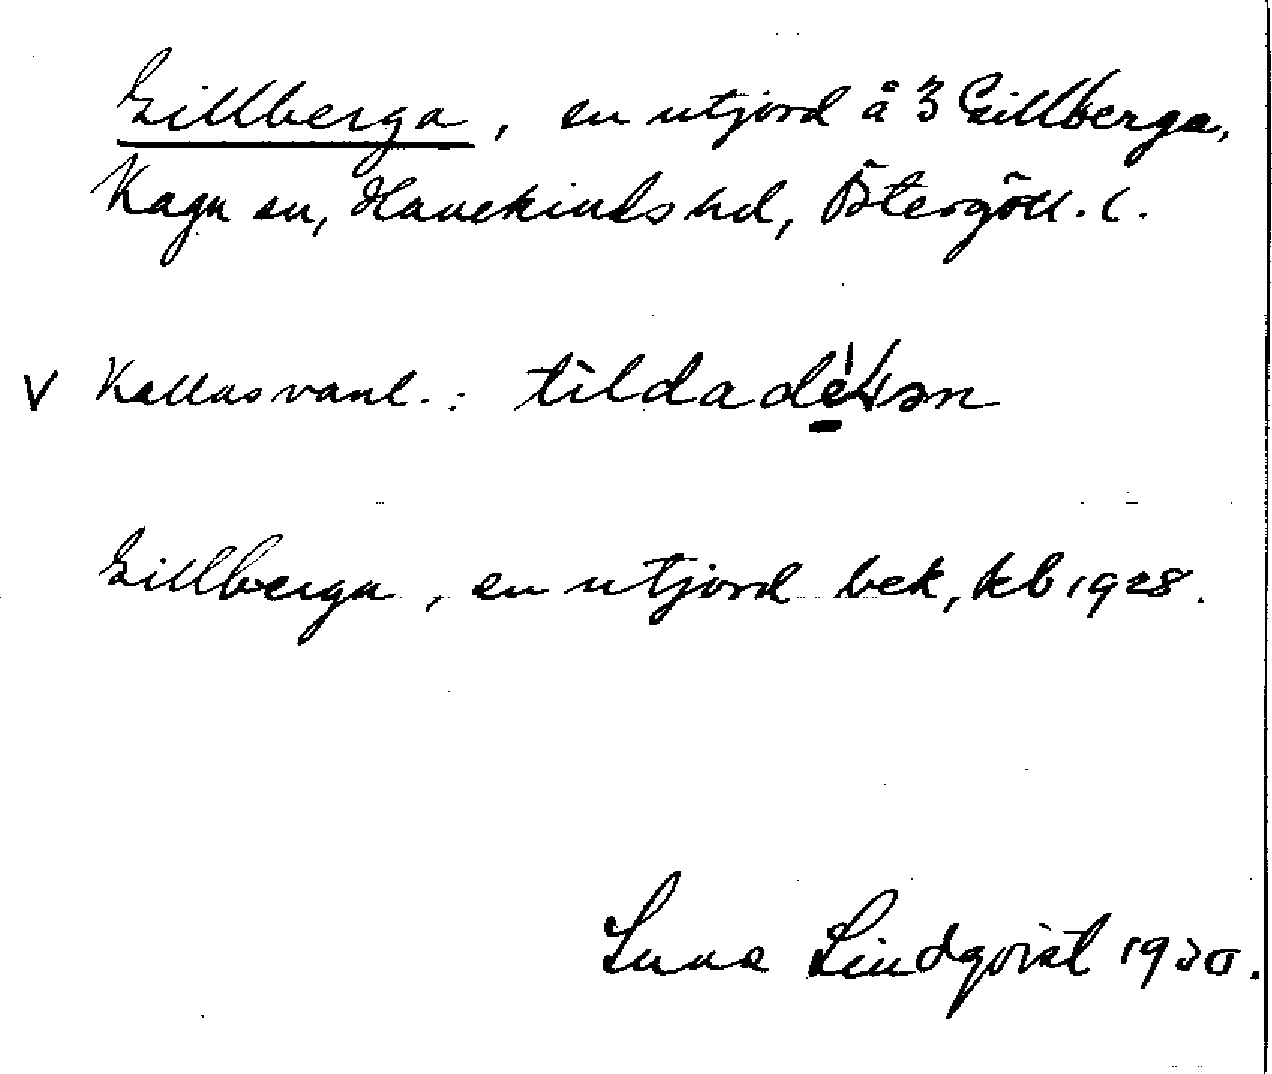 Gillberga, en utjord å 3 Gillberga,
Kaga sn, Hanekinds hd, Östergötl. l.
V Kallas vanl.:
Gillberga, en utjord bek, kb 1928.
Lindqvist 1930.